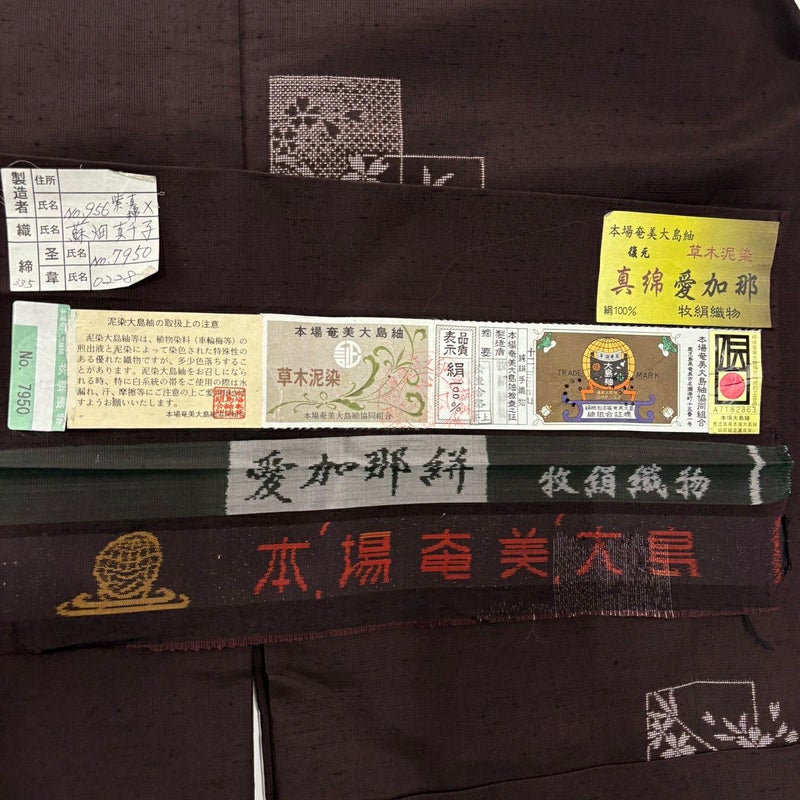 製造者
住所
氏名
No.956
織
氏名
蘇畑真千子
締
圣
韋
氏名
No.7950
氏名
0228
335
本場奄美大島紬
復元 草木泥染
真綿 愛加那
絹100% 牧絹織物
No. 7950
泥染大島紬の取扱上の注意
泥染大島紬等は、植物染料(車輪梅等)の
煎出液と泥染によって染色された特殊性の
ある優れた織物ですが、多少色落ちするこ
とがあります。大島紬をお召しになら
れる時、特に白系統の帯をご使用の際は水
濡れ、汗、摩擦等にご注意の上ご愛
すようお願いいたします。
本場奄美大島紬
本場奄美大島紬
正
草木泥染
本場奄美大島紬協同組合
品質表示
絹100%
本場奄美大島紬検査之証
製造者
摘要
TRADE MARK
大島紬
本場奄美大島紬協同組合
伝
A7182863
本場大島紬
愛加那絣
牧絹織物
本場奄美大島